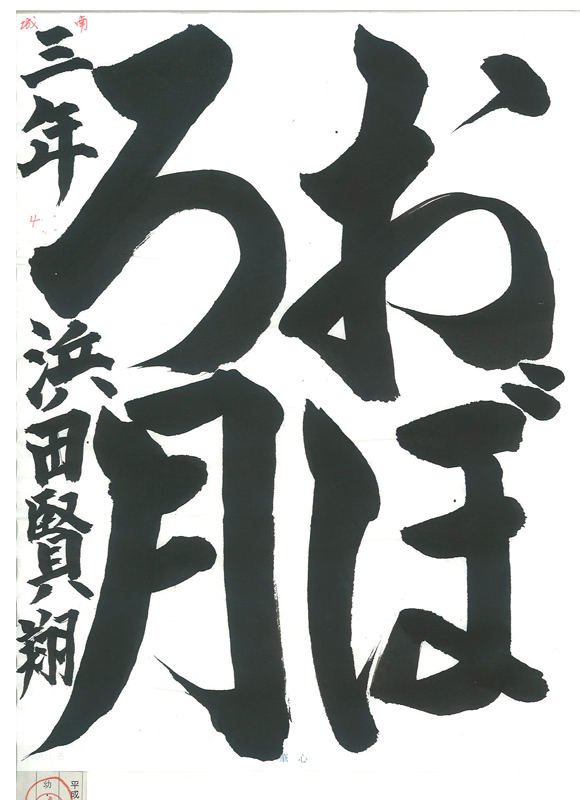 おぼ
ろ月
三年 浜田賢翔
南城
4
心筆
平成
幼